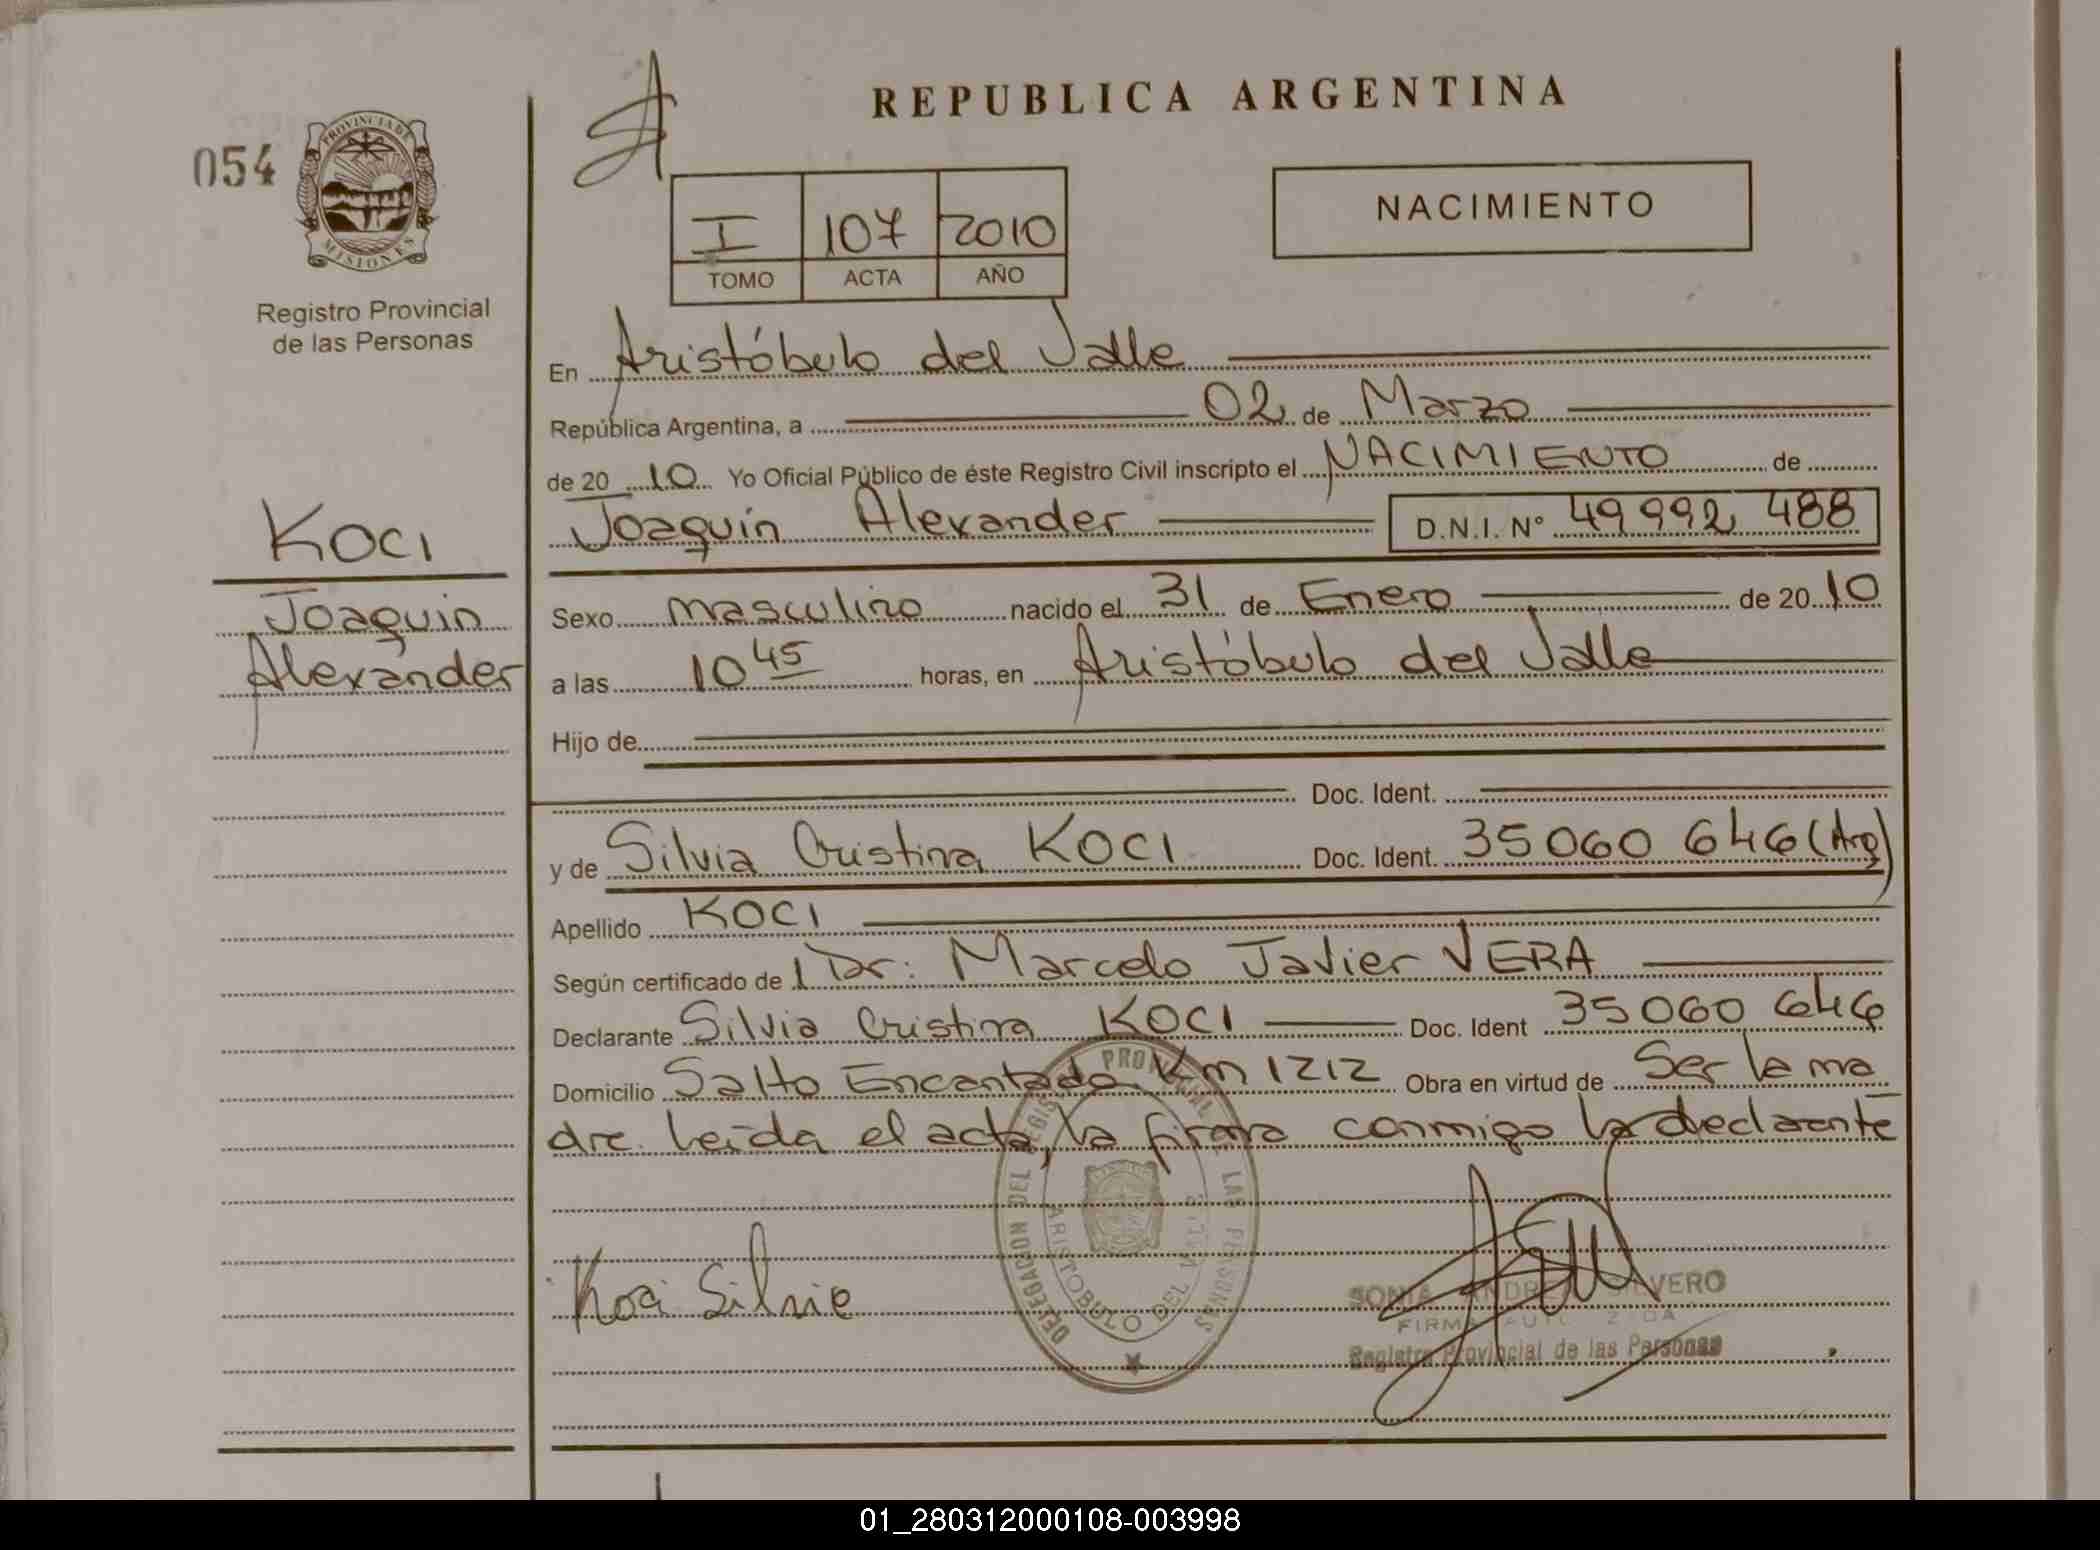 REPUBLICA ARGENTINA
054
PROVINCIA DE
MISIONES
Registro Provincial
de las Personas
I 107 2010
TOMO ACTA AÑO
NACIMIENTO
En Aristóbulo del Valle
República Argentina, a 02 de Marzo
de 20 10 Yo Oficial Público de éste Registro Civil inscripto el NACIMIENTO de
Joaquín Alexander D.N.I. Nº 49 992 488
KOCI
Joaquin
Alexander
Sexo masculino nacido el 31 de Enero de 20 10
a las 10 45 horas, en Aristóbulo del Valle
Hijo de
Doc. Ident.
y de Silvia Cristina KOCI Doc. Ident. 35 060 646 (Arg)
Apellido KOCI
Según certificado de l Dr: Marcelo Javier VERA
Declarante Silvia Cristina KOCI Doc. Ident 35 060 646
Domicilio Salto Encantado Km 1212 Obra en virtud de Ser la ma
dre. Leída el acta, la firma conmigo la declarante
DELEGACION DEL REGISTRO PROVINCIAL DE LAS PERSONAS
ARISTOBULO DEL VALLE
Koci Silvie
SONIA ANDREA
FIRMA AUTORIZADA
Registro Provincial de las Personas
01_280312000108-003998